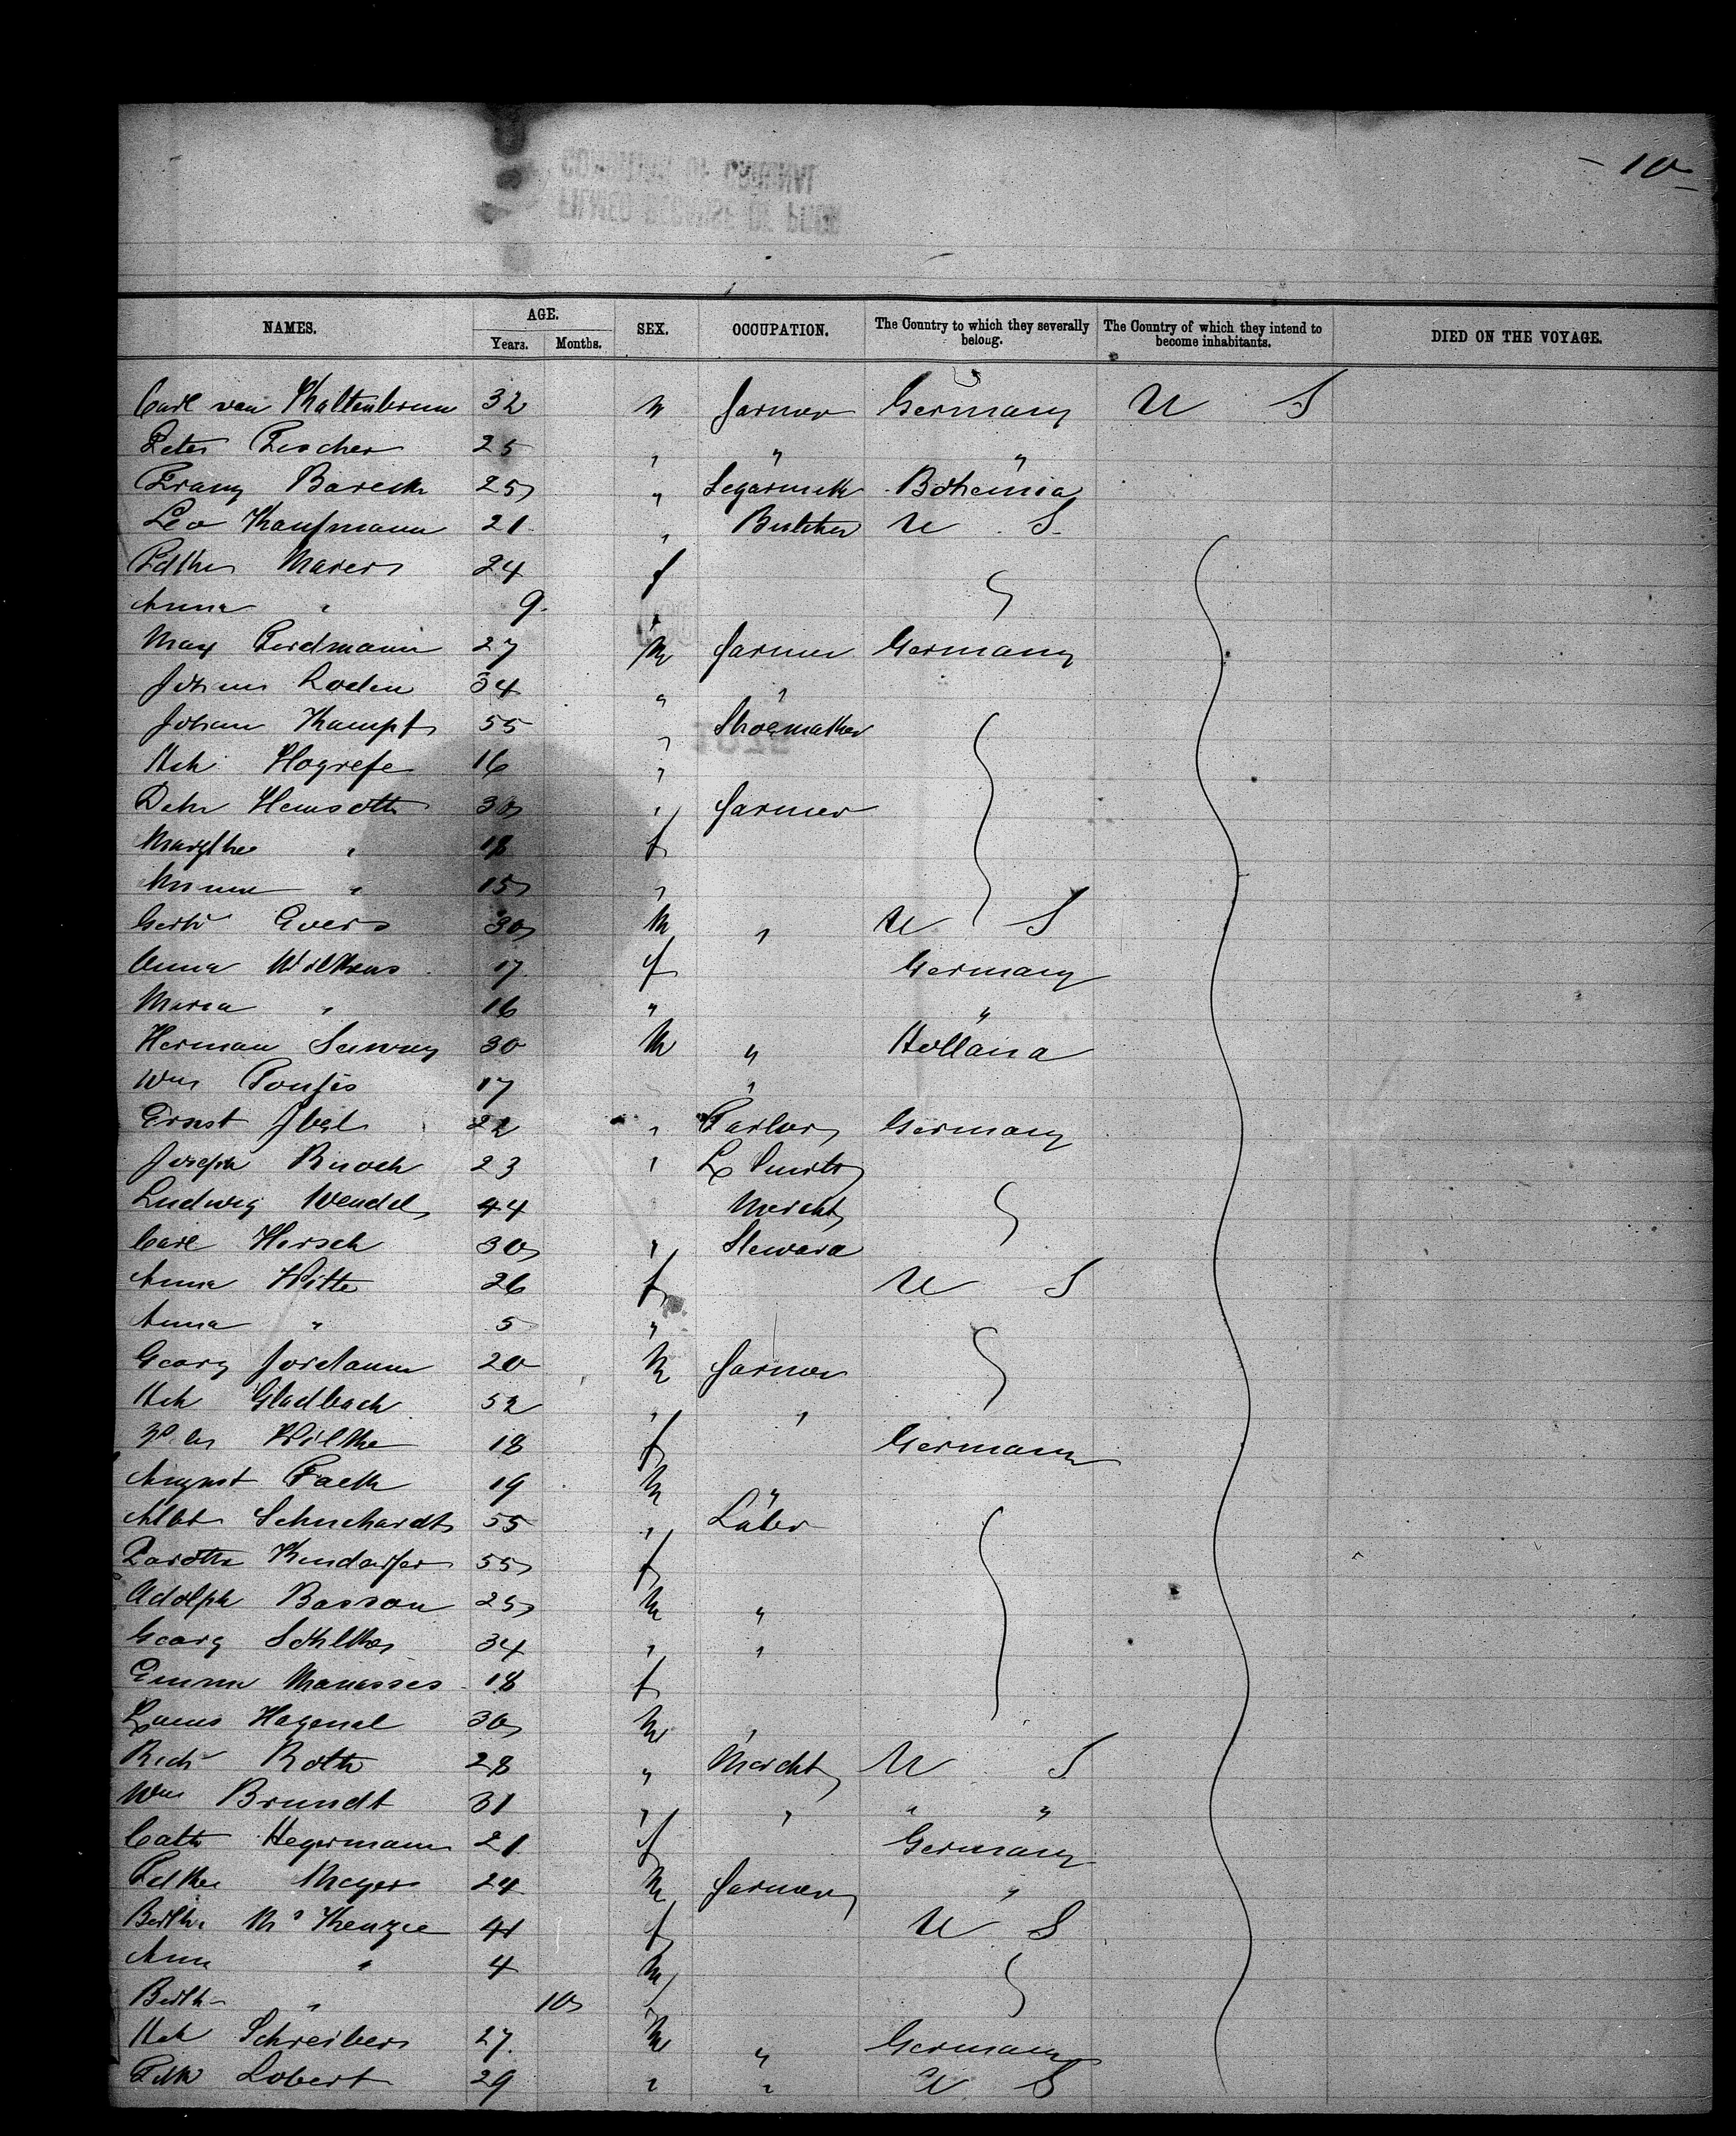 - 10 -
NAMES. AGE. Years. Months. SEX. OCCUPATION. The Country to which they severally belong. The Country of which they intend to become inhabitants. DIED ON THE VOYAGE.
Carl von Kaltenbrunn 32 m farmer Germany U S
Peter Fischer 25 " " "
Franz Baresch 25 " Segarmk Bohemia
Leo Kaufmann 21 " Butcher U S
24 f
Anna " 9 "
Max 27 m farmer Germany
Johann Roden 34 " "
Johann Kampf 55 " Shoemaker
Hch Hogrefe 16 "
Dehr Hemsoth 30 " farmer
Margthe " 18 f
Minna " 15 "
Gerhd Evers 30 m " U S
Anna Wilkens 17 f Germany
Maria " 16 " "
Herman 30 m " Holland
Wm 17 "
Ernst 22 " Germany
Joseph 23 "
Ludwig Wendel 44 Mercht
Carl Hirsch 30 " Steward
Anna Witte 26 f U S
Anna " 5 "
Georg Jordann 20 m farmer
Hch Gladbach 52 " "
Wilke 18 f Germany
August 19 m "
Albt Schuchardt 55 " Labr
55 f
Adolph Basson 25 m "
Georg 34 " "
Emma Manasses 18 f
Hagenal 30 m "
Rich Roth 28 " Mercht U S
Wm Brundt 31 " " " "
Cath Hegermann 21 f Germany
Meyer 24 m farmer "
Berth Mc Kenzie 41 f U S
Ann " 4 m
Berth " 10
Hch Schreiber 27 m " Germany
Lobert 29 " " U S